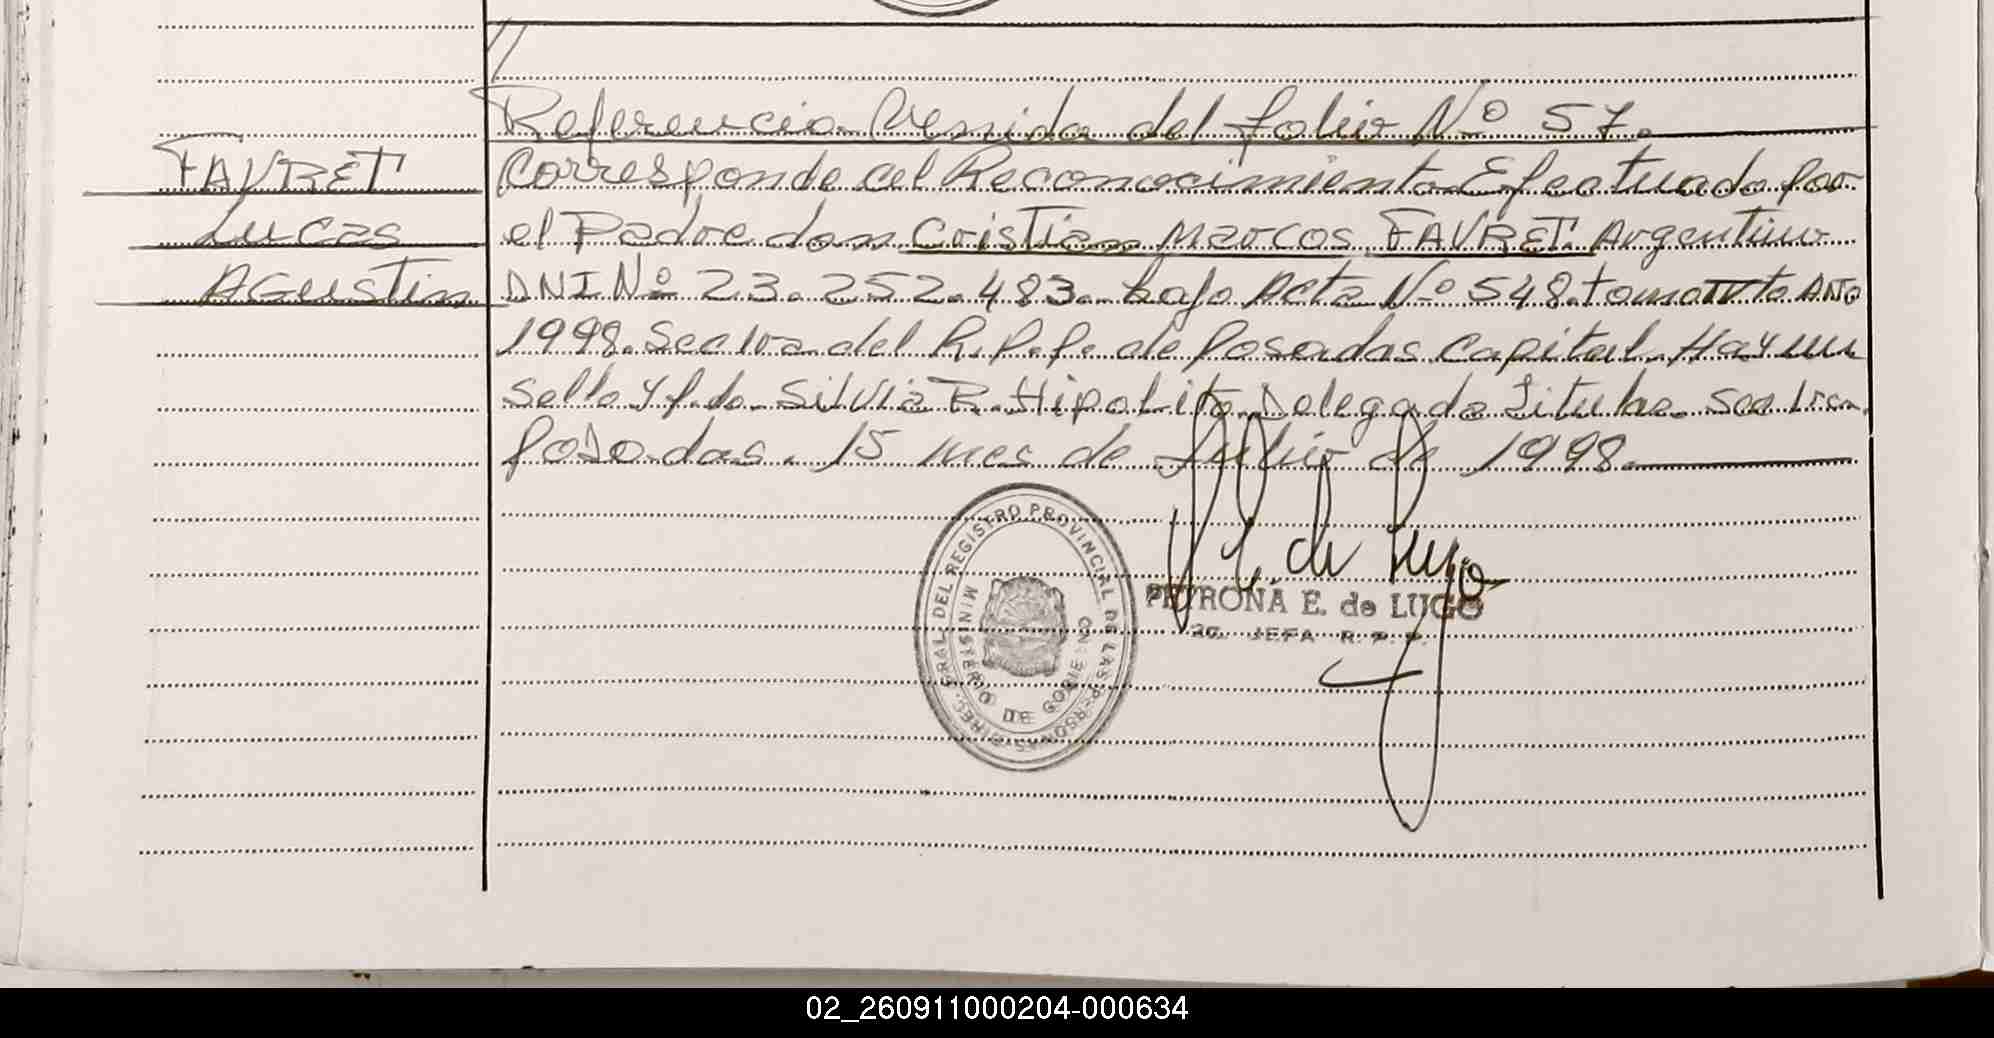 //
Referencia Venida del folio Nº 57.
FAVRET
Corresponde al Reconocimiento Efectuado por
Lucas
el Padre don Cristian Marcos FAVRET. Argentino
AGustin
DNI Nº 23.252.483. bajo Acta Nº 548. tomo IVto Año
1998. Sec 1ra del R.P.P. de Posadas Capital. Hay un
Sello y f.do. Silvia R. Hipolito Delegada Titular. Sec 1ra.
Posadas. 15 mes de Julio de 1998.
E. de Lugo
PETRONA E. de LUGO
JEFA R. P. P.
GRAL. DEL REGISTRO PROVINCIAL DE LAS PERSONAS
MINISTERIO DE GOBIERNO
02_260911000204-000634